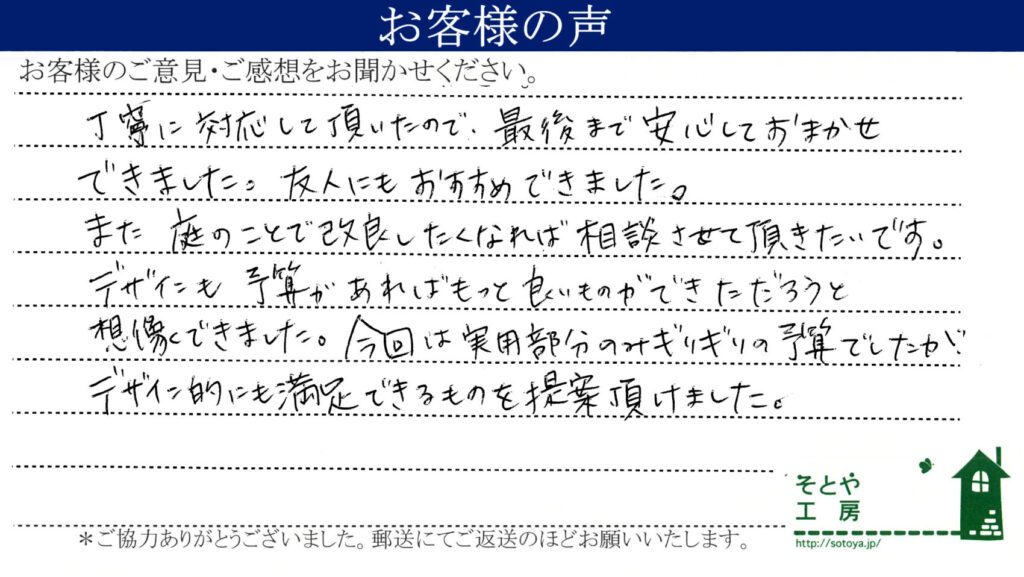 お客様の声
お客様のご意見・ご感想をお聞かせください。
丁寧に対応して頂いたので、最後まで安心しておまかせ
できました。友人にもおすすめできました。
また庭のことで改良したくなれば相談させて頂きたいです。
デザインも予算があればもっと良いものができただろうと
想像できました。今回は実用部分のみギリギリの予算でしたが、
デザイン的にも満足できるものを提案頂けました。
そとや
工房
http://sotoya.jp/
＊ご協力ありがとうございました。郵送にてご返送のほどお願いいたします。